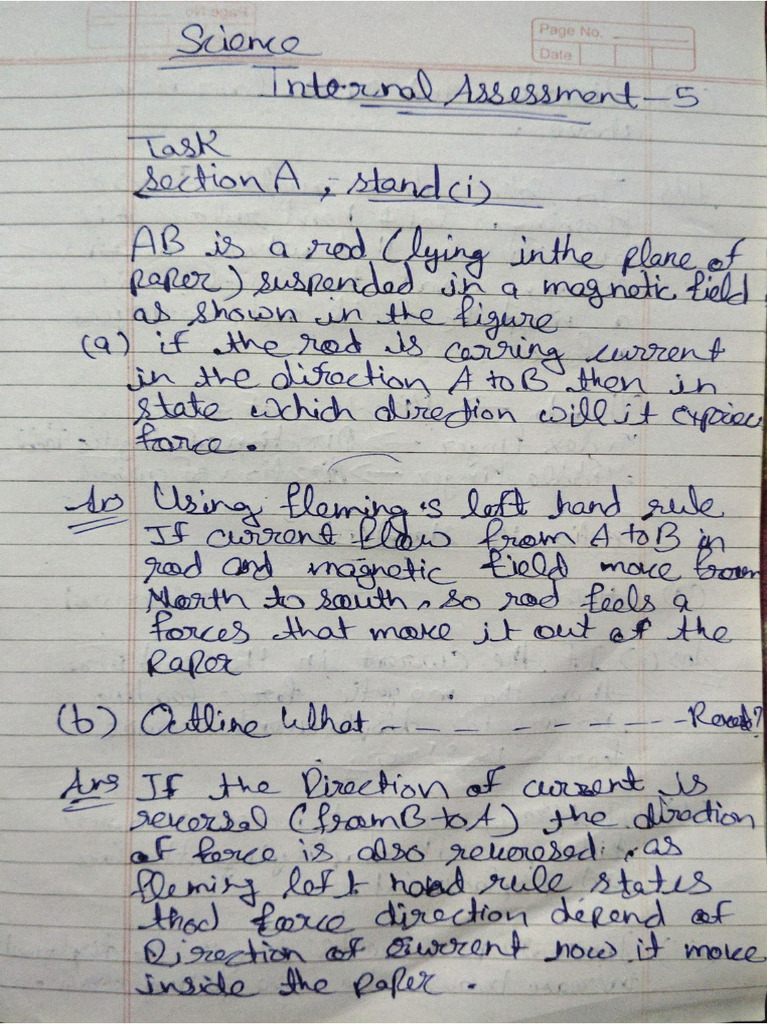 Page No.
Date
Science
Internal Assessment-5
Task
section A, stand(i)
AB is a rod (lying inthe plane of
paper) suspended in a magnetic field
as shown in the figure
(a) if the rod is carring current
in the direction A to B then in
state which direction will it
force.
Ans Using fleming's left hand rule
If current flow from A to B in
rod and magnetic field move from
North to south, so rod feels a
forces that move it out of the
paper
(b) Outline What - - - - - - - - -
Ans If the Direction of current is
reversal (from B to A) the direction
of force is also reverosed, as
fleming left hand rule states
force direction depend of
Direction of current now it move
inside the paper.